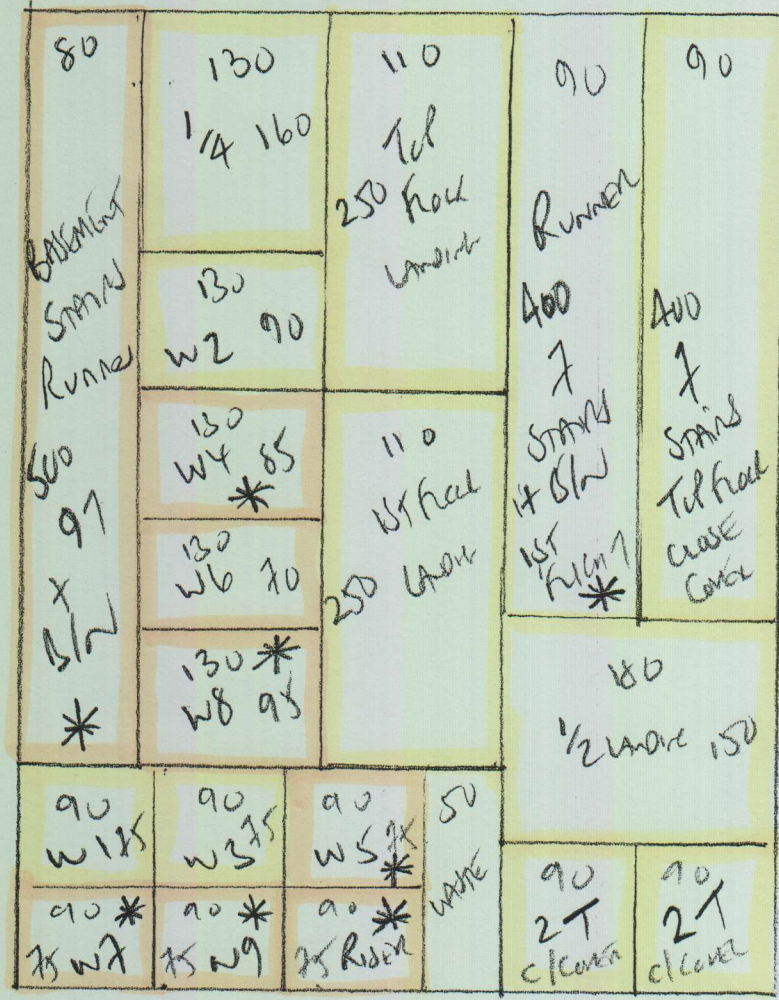 80
BASEMENT
STAIRS
RUNNER
500
+
B/N
*
130
1/4 160
130
W2 90
130
W4 85
*
130
W6 70
130 *
W8 95
110
TOP
250 FLOOR
LANDING
110
1ST FLOOR
250 LANDING
90
RUNNER
400
7
STAIRS
1+ B/N
1ST
FLIGHT
*
90
400
7
STAIRS
TOP FLOOR
CLOSE
COVER
1/2 LANDING 150
90
W1 75
90
W3 75
90
W5 75
*
50
WASTE
90 *
75 W7
90 *
75 W9
90 *
75 RISER
90
2T
C/COVER
90
2T
C/COVER